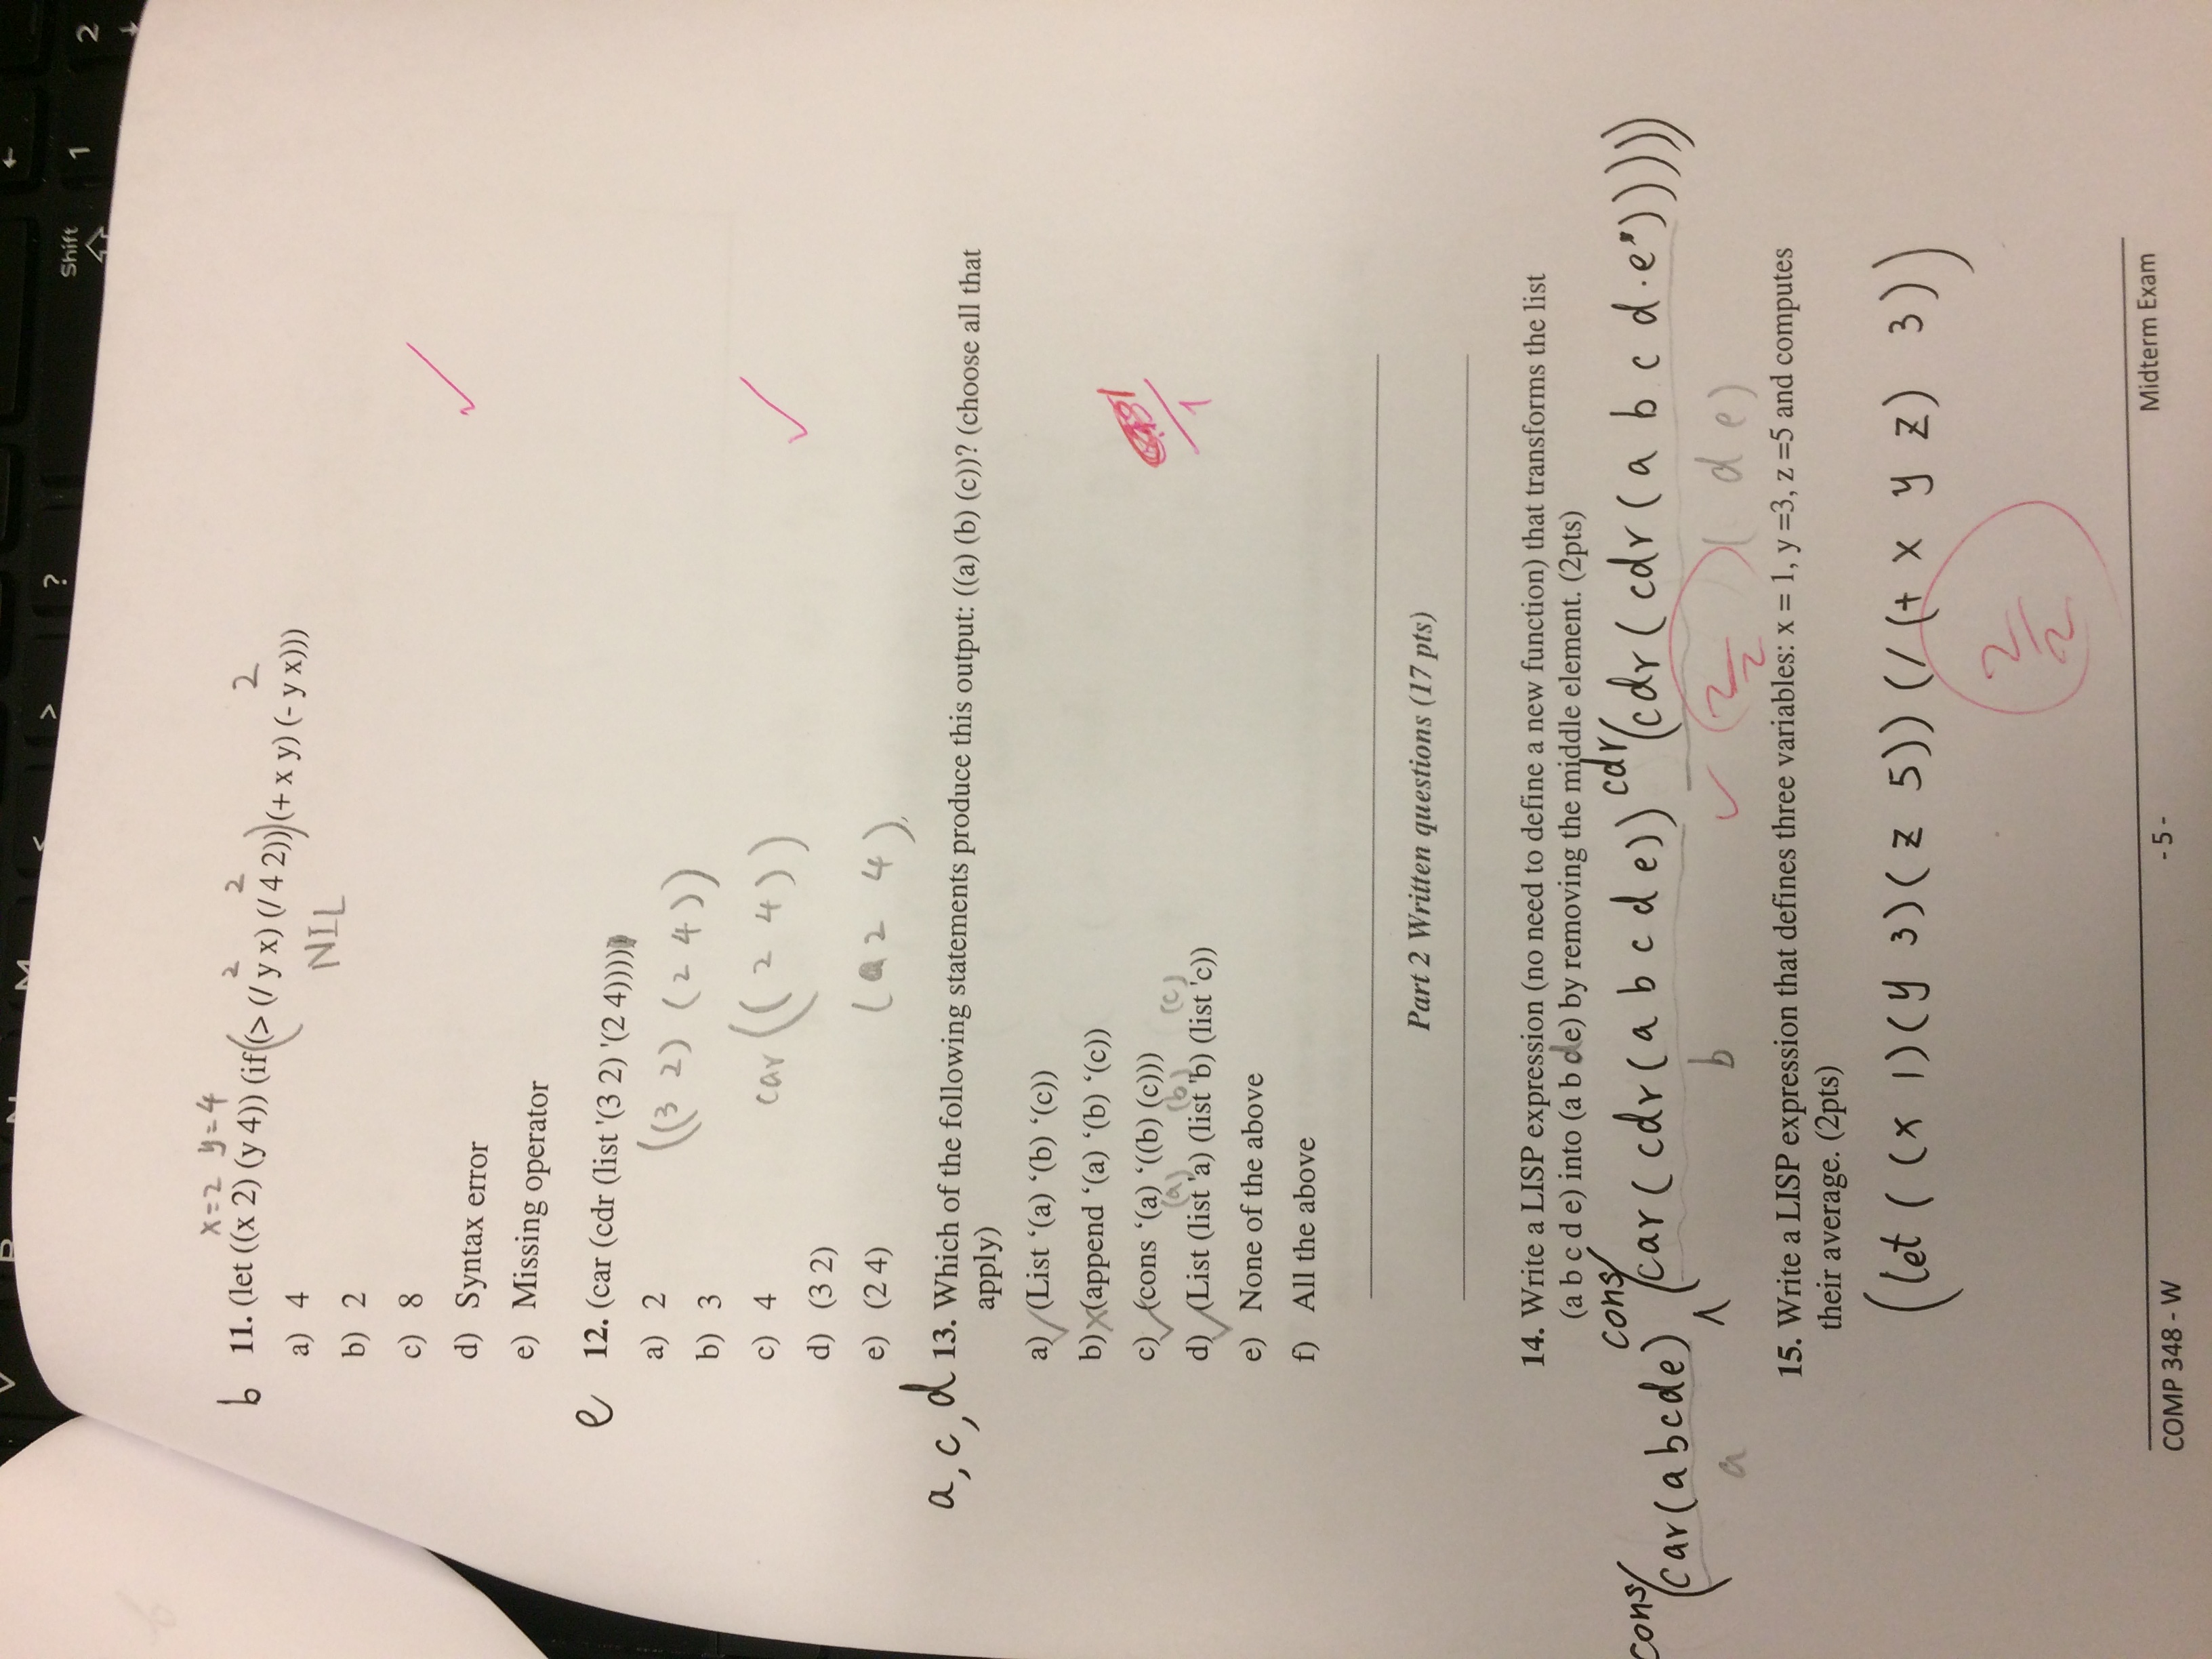 < > ? Shift 1 2
x=2 y=4 2 2 2
b 11. (let ((x 2) (y 4)) (if((> (/ y x) (/ 4 2)))(+ x y) (- y x)))
NIL
a) 4
b) 2
c) 8
d) Syntax error
e) Missing operator
e 12. (car (cdr (list '(3 2) '(2 4))))
a) 2
((3 2) (2 4))
b) 3
c) 4
car ((2 4))
d) (3 2)
e) (2 4)
(2 4)
a,c,d 13. Which of the following statements produce this output: ((a) (b) (c))? (choose all that
apply)
a) (List ‘(a) ‘(b) ‘(c))
b) x (append ‘(a) ‘(b) ‘(c))
c) (cons ‘(a) ‘((b) (c)))
(a) (b) (c)
d) (List (list 'a) (list 'b) (list 'c))
1
e) None of the above
f) All the above
Part 2 Written questions (17 pts)
14. Write a LISP expression (no need to define a new function) that transforms the list
(a b c d e) into (a b d e) by removing the middle element. (2pts)
cons(car(abcde) cons(car(cdr(a b c d e)) cdr(cdr(cdr(a b c d e)))))
a b 2/2 (d e)
15. Write a LISP expression that defines three variables: x = 1, y =3, z =5 and computes
their average. (2pts)
(let ((x 1)(y 3)(z 5)) (/ (+ x y z) 3))
2/2
COMP 348 - W - 5 - Midterm Exam